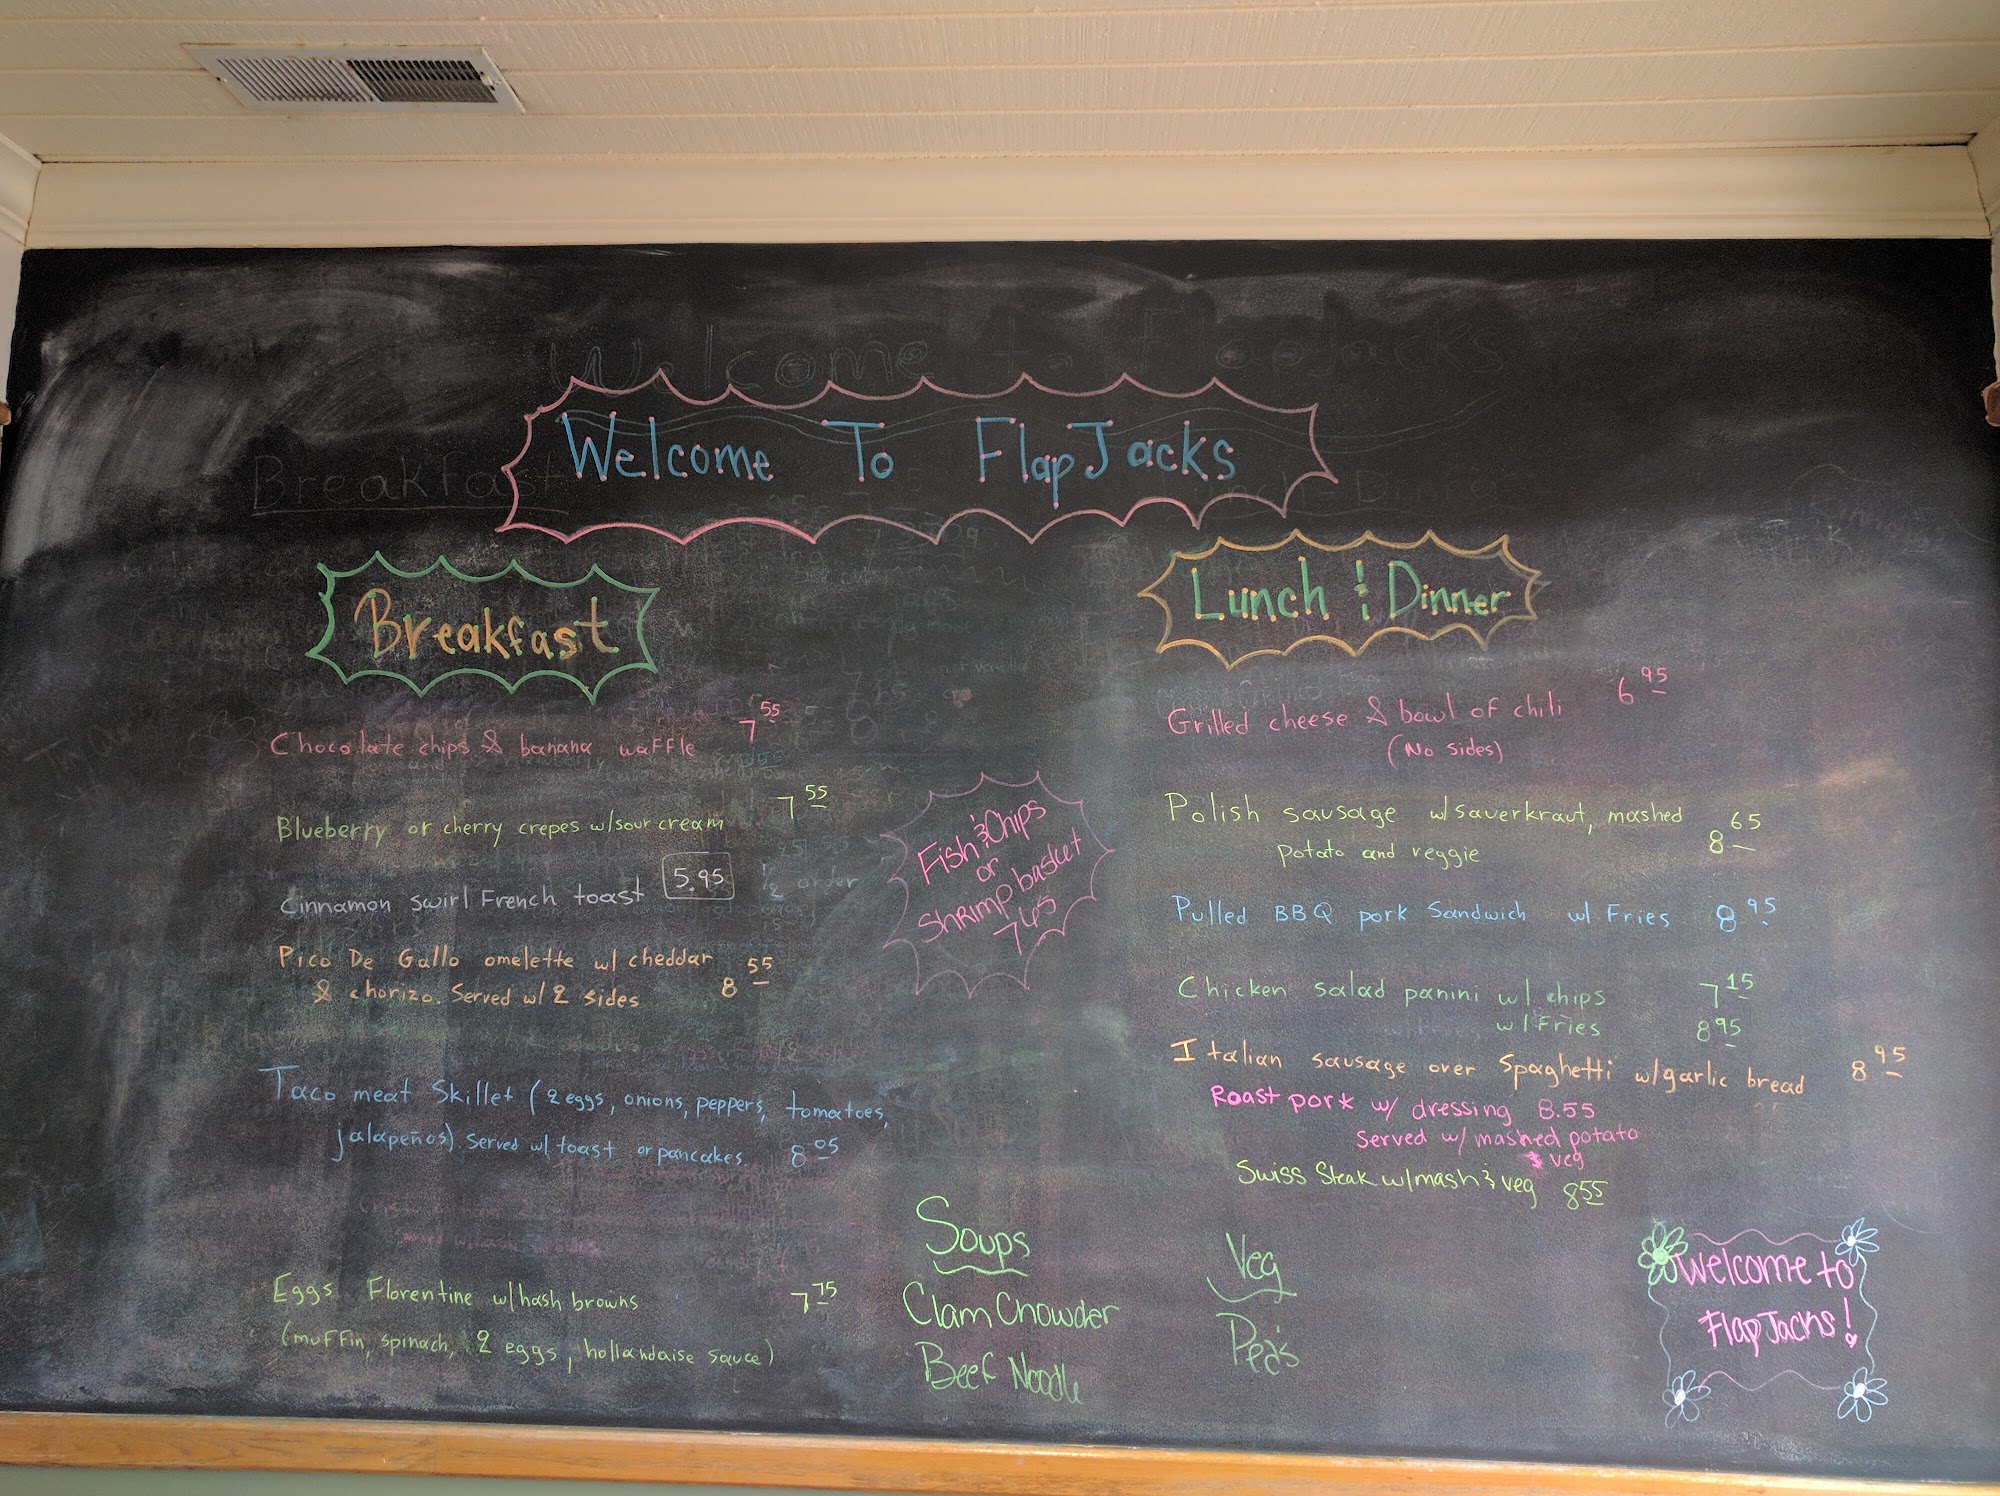 Welcome To FlapJacks
Breakfast
Chocolate chips & banana waffle 7 55
Blueberry or cherry crepes w/sour cream 7 55
Cinnamon swirl French toast 5.95 1/2 order
Pico De Gallo omelette w/ cheddar 8 55
& chorizo. Served w/ 2 sides
Taco meat Skillet (2 eggs, onions, peppers, tomatoes,
jalapeños) Served w/ toast or pancakes 8 05
Eggs Florentine w/hash browns 7 75
(muffin, spinach, 2 eggs, hollandaise sauce)
Fish & Chips
or
Shrimp basket
7 65
Soups
Clam Chowder
Beef Noodle
Lunch & Dinner
Grilled cheese & bowl of chili 6 95
(No sides)
Polish sausage w/saverkraut, mashed
potato and veggie 8 65
Pulled BBQ pork Sandwich w/ Fries 8 95
Chicken salad panini w/ chips 7 15
w/ Fries 8 95
Italian sausage over Spaghetti w/garlic bread 8 95
Roast pork w/ dressing 8.55
Served w/ mashed potato
& veg
Swiss Steak w/mash & veg 8 55
Veg
Pea's
Welcome to
FlapJacks!